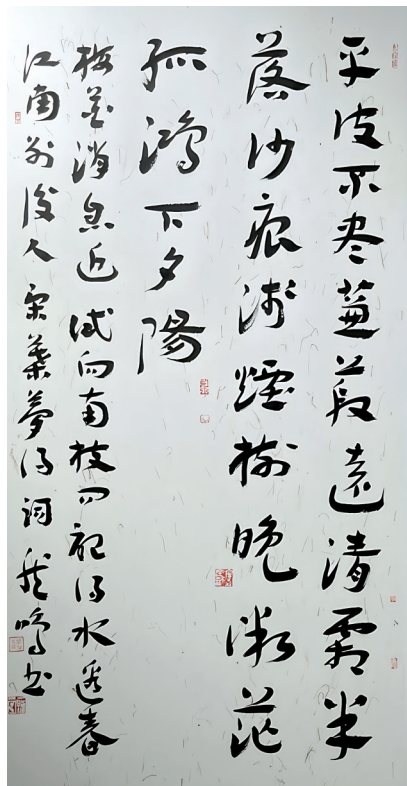 平波不尽蒹葭遠清霜半
落沙痕浅煙樹晚微茫
孤鴻下夕陽
梅花消息近试向南枝问記得水邊春
江南别後人宋葉夢得詞鳴书